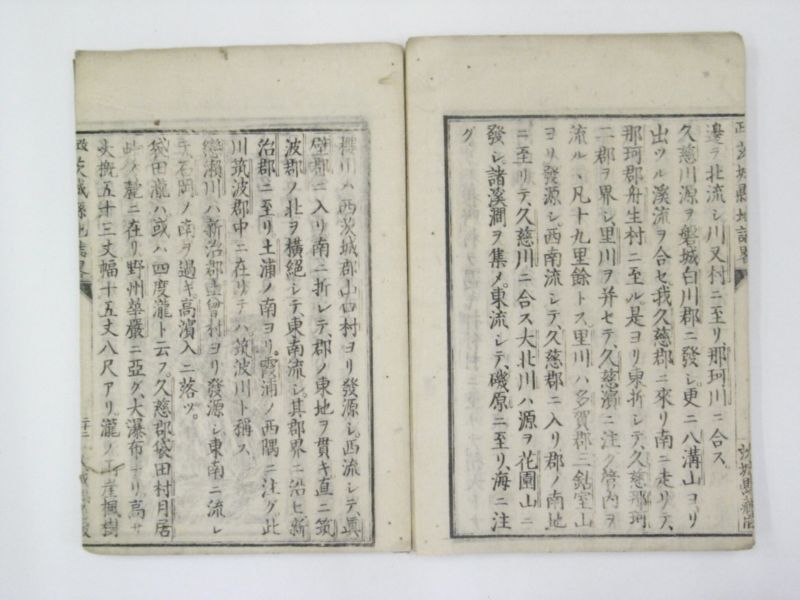 邊ヲ北流シ川又村ニ至リ、那珂川ニ合ス。
久慈川源ヲ磐城白川郡ニ發シ、更ニ八溝山ヨリ
出ツル溪流ヲ合セ、我久慈郡ニ來リ南ニ走リテ、
那珂郡舟生村ニ至ル。是ヨリ東折シテ、久慈那珂
二郡ヲ界シ、里川ヲ并セテ、久慈濱ニ注ク。管内ヲ
流ルヽ凡十九里餘トス。里川ハ多賀郡三鈷室山
ヨリ發源シ、西南流シテ、久慈郡ニ入リ郡ノ南地
ニ至リテ、久慈川ニ合ス。大北川ハ源ヲ花園山ニ
發シ、諸溪澗ヲ集メ、東流シテ、磯原ニ至リ、海ニ注
グ
茨城縣地誌畧
櫻川ハ西茨城郡山口村ヨリ發源シ、西流シテ、眞
壁郡ニ入リ南ニ折レテ、郡ノ東地ヲ貫キ直ニ筑
波郡ノ北ヲ横絕シテ、東南流シ、其郡界ニ沿ヒ新
治郡ニ至リ、土浦ノ南ヨリ、霞浦ノ西隅ニ注グ。此
川筑波郡中ニ在リテハ筑波川ト稱ス
戀瀨川ハ新治郡 曾村ヨリ發源シ、東南ニ流レ
石岡ノ南ヲ過キ高濱入ニ落ツ。
袋田瀧ハ、或ハ四度瀧ト云フ。久慈郡袋田村月居
山ノ麓ニ在リ、野州華嚴ニ亞グ、大瀑布ナリ。高サ
大概五十三丈幅十五丈八尺アリ。瀧ノ 崖楓樹
茨城縣地誌畧